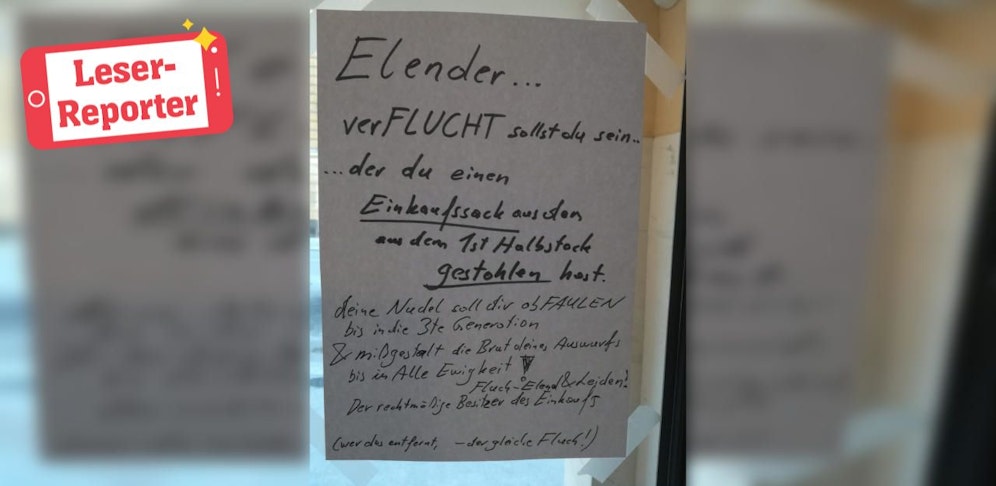 Leser-
Reporter
!
Elender...
verFLUCHT sollst du sein..
...der du einen
Einkaufssack aus den
aus dem 1st Halbstock
gestohlen hast.
deine Nudel soll dir abFAULEN
bis in die 3te Generation
& mißgestalt die Brut deines Auswurfs
bis in Alle Ewigkeit !
Fluch - Elend & Leiden!
Der rechtmäßige Besitzer des Einkaufs
(wer das entfernt, - der gleiche Fluch!)